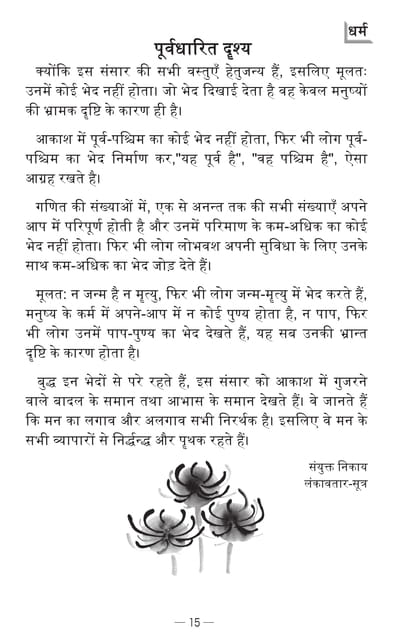 धर्म
पूर्वधारित दृश्य
क्योंकि इस संसार की सभी वस्तुएँ हेतुजन्य हैं, इसलिए मूलतः
उनमें कोई भेद नहीं होता। जो भेद दिखाई देता है वह केवल मनुष्यों
की भ्रामक दृष्टि के कारण ही है।
आकाश में पूर्व-पश्चिम का कोई भेद नहीं होता, फिर भी लोग पूर्व-
पश्चिम का भेद निर्माण कर,"यह पूर्व है", "वह पश्चिम है", ऐसा
आग्रह रखते है।
गणित की संख्याओं में, एक से अनन्त तक की सभी संख्याएँ अपने
आप में परिपूर्ण होती है और उनमें परिमाण के कम-अधिक का कोई
भेद नहीं होता। फिर भी लोग लोभवश अपनी सुविधा के लिए उनके
साथ कम-अधिक का भेद जोड़ देते हैं।
मूलत: न जन्म है न मृत्यु, फिर भी लोग जन्म-मृत्यु में भेद करते हैं,
मनुष्य के कर्म में अपने-आप में न कोई पुण्य होता है, न पाप, फिर
भी लोग उनमें पाप-पुण्य का भेद देखते हैं, यह सब उनकी भ्रान्त
दृष्टि के कारण होता है।
बुद्ध इन भेदों से परे रहते हैं, इस संसार को आकाश में गुजरने
वाले बादल के समान तथा आभास के समान देखते हैं। वे जानते हैं
कि मन का लगाव और अलगाव सभी निरर्थक है। इसलिए वे मन के
सभी व्यापारों से निर्द्धन्द्ध और पृथक रहते हैं।
संयुक्त निकाय
लंकावतार-सूत्र
— 15 —